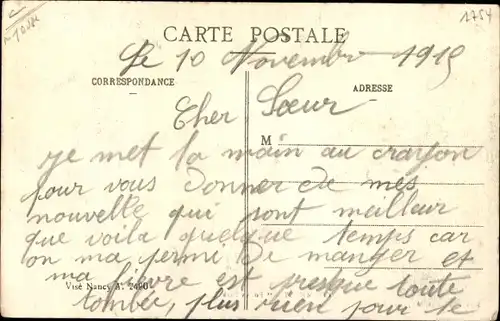 1754
CARTE POSTALE
Le 10 Novembr 1915
CORRESPONDANCE
ADRESSE
Cher Sœur
M
je met la main au crayon
pour vous donner de mes
nouvelle qui sont meilleur
que voila quelque temps car
on ma permi de manger et
ma fièvre est presque toute
Visé Nancy A. 2490
tombée, plus rien pour le